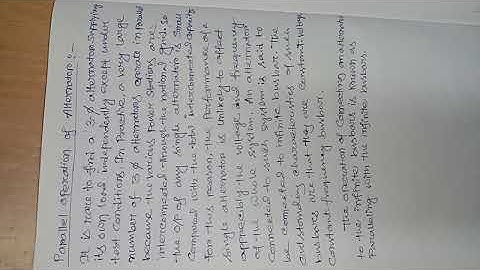 Parallel operation of Alternators :-
It is rare to find a 3 Ø alternator supplying
its own load independently except under
test conditions. In Practice a very large
number of 3 Ø alternators operate in parallel
because the various Power stations are
interconnected through the national grid. So
the O/P of any single alternator is small
compared with the total interconnected capacity
For this reason, the Performance of a
single alternator is unlikely to affect
appreciably the voltage and frequency
of the whole system. An alternator
connected to such system is said to
be connected to infinite busbar. The
outstanding characteristics of such
busbars are that they are constant-voltage
Constant-frequency busbar.
The operation of connecting an alternator
to the infinite busbar is known as
Paralleling with the infinite busbar.